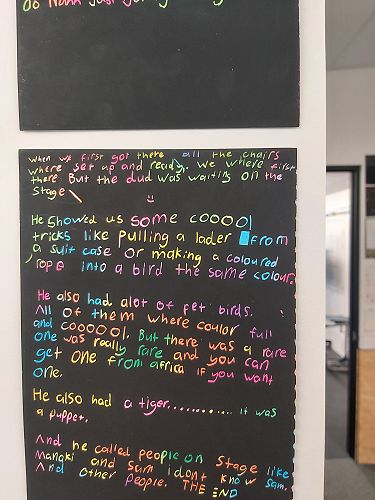 when we first got there all the chairs
where set up and ready. we where first
there. But the dud was waiting on the
stage
He showed us some cooool
tricks like pulling a lader from
a suit case or making a coloured
rope into a bird the same colour.
He also had alot of pet birds.
All of them where coulor full
and cooool. But there was a rare
one was really rare and you can
get one from africa if you want
one.
He also had a tiger............ it was
a puppet.
And he called people on stage like
Manaki and Sam i dont know Sam.
And other people. THE END